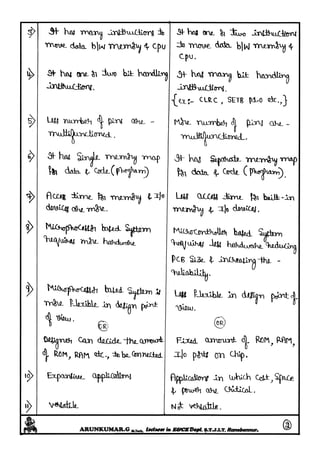 3) It has many instructions to It has one or two instructions
move data b/w memory & CPU to move data b/w memory &
CPU.
4) It has one or two bit handling It has many bit handling
instructions. instructions.
{ex:- CLRC, SETB P2.0 etc.,}
5) Less number of pins are - More number of pins are -
multifunctioned. multifunctioned.
6) It has Single memory map It has Separate memory map
for data & Code (program) for data & Code (program).
7) Access time for memory & I/o Less access time for built-in
devices are more. memory & I/o devices.
8) Microprocessor based System Microcontroller based System
requires more hardware requires less hardware reducing
PCB Size & increasing the -
reliability.
9) Microprocessor based System is Less flexible in design point of
more flexible in design point view.
of view.
(OR) (OR)
Designer Can decide the amount Fixed amount of ROM, RAM,
of ROM, RAM etc., to be connected I/o ports on chip.
10) Expansive applications Applications in which Cost, Space
& power are Critical.
11) Versatile Not versatile.
ARUNKUMAR.G M.Tech, Lecturer in E&CE Dept. S.T.J.I.T. Ranebennur. 2